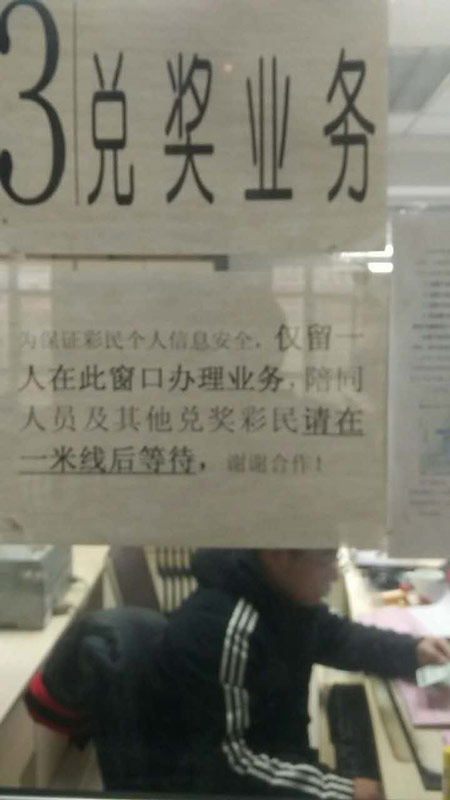 3 兑奖业务
为保证彩民个人信息安全，仅留一
人在此窗口办理业务，陪同
人员及其他兑奖彩民请在
一米线后等待，谢谢合作！